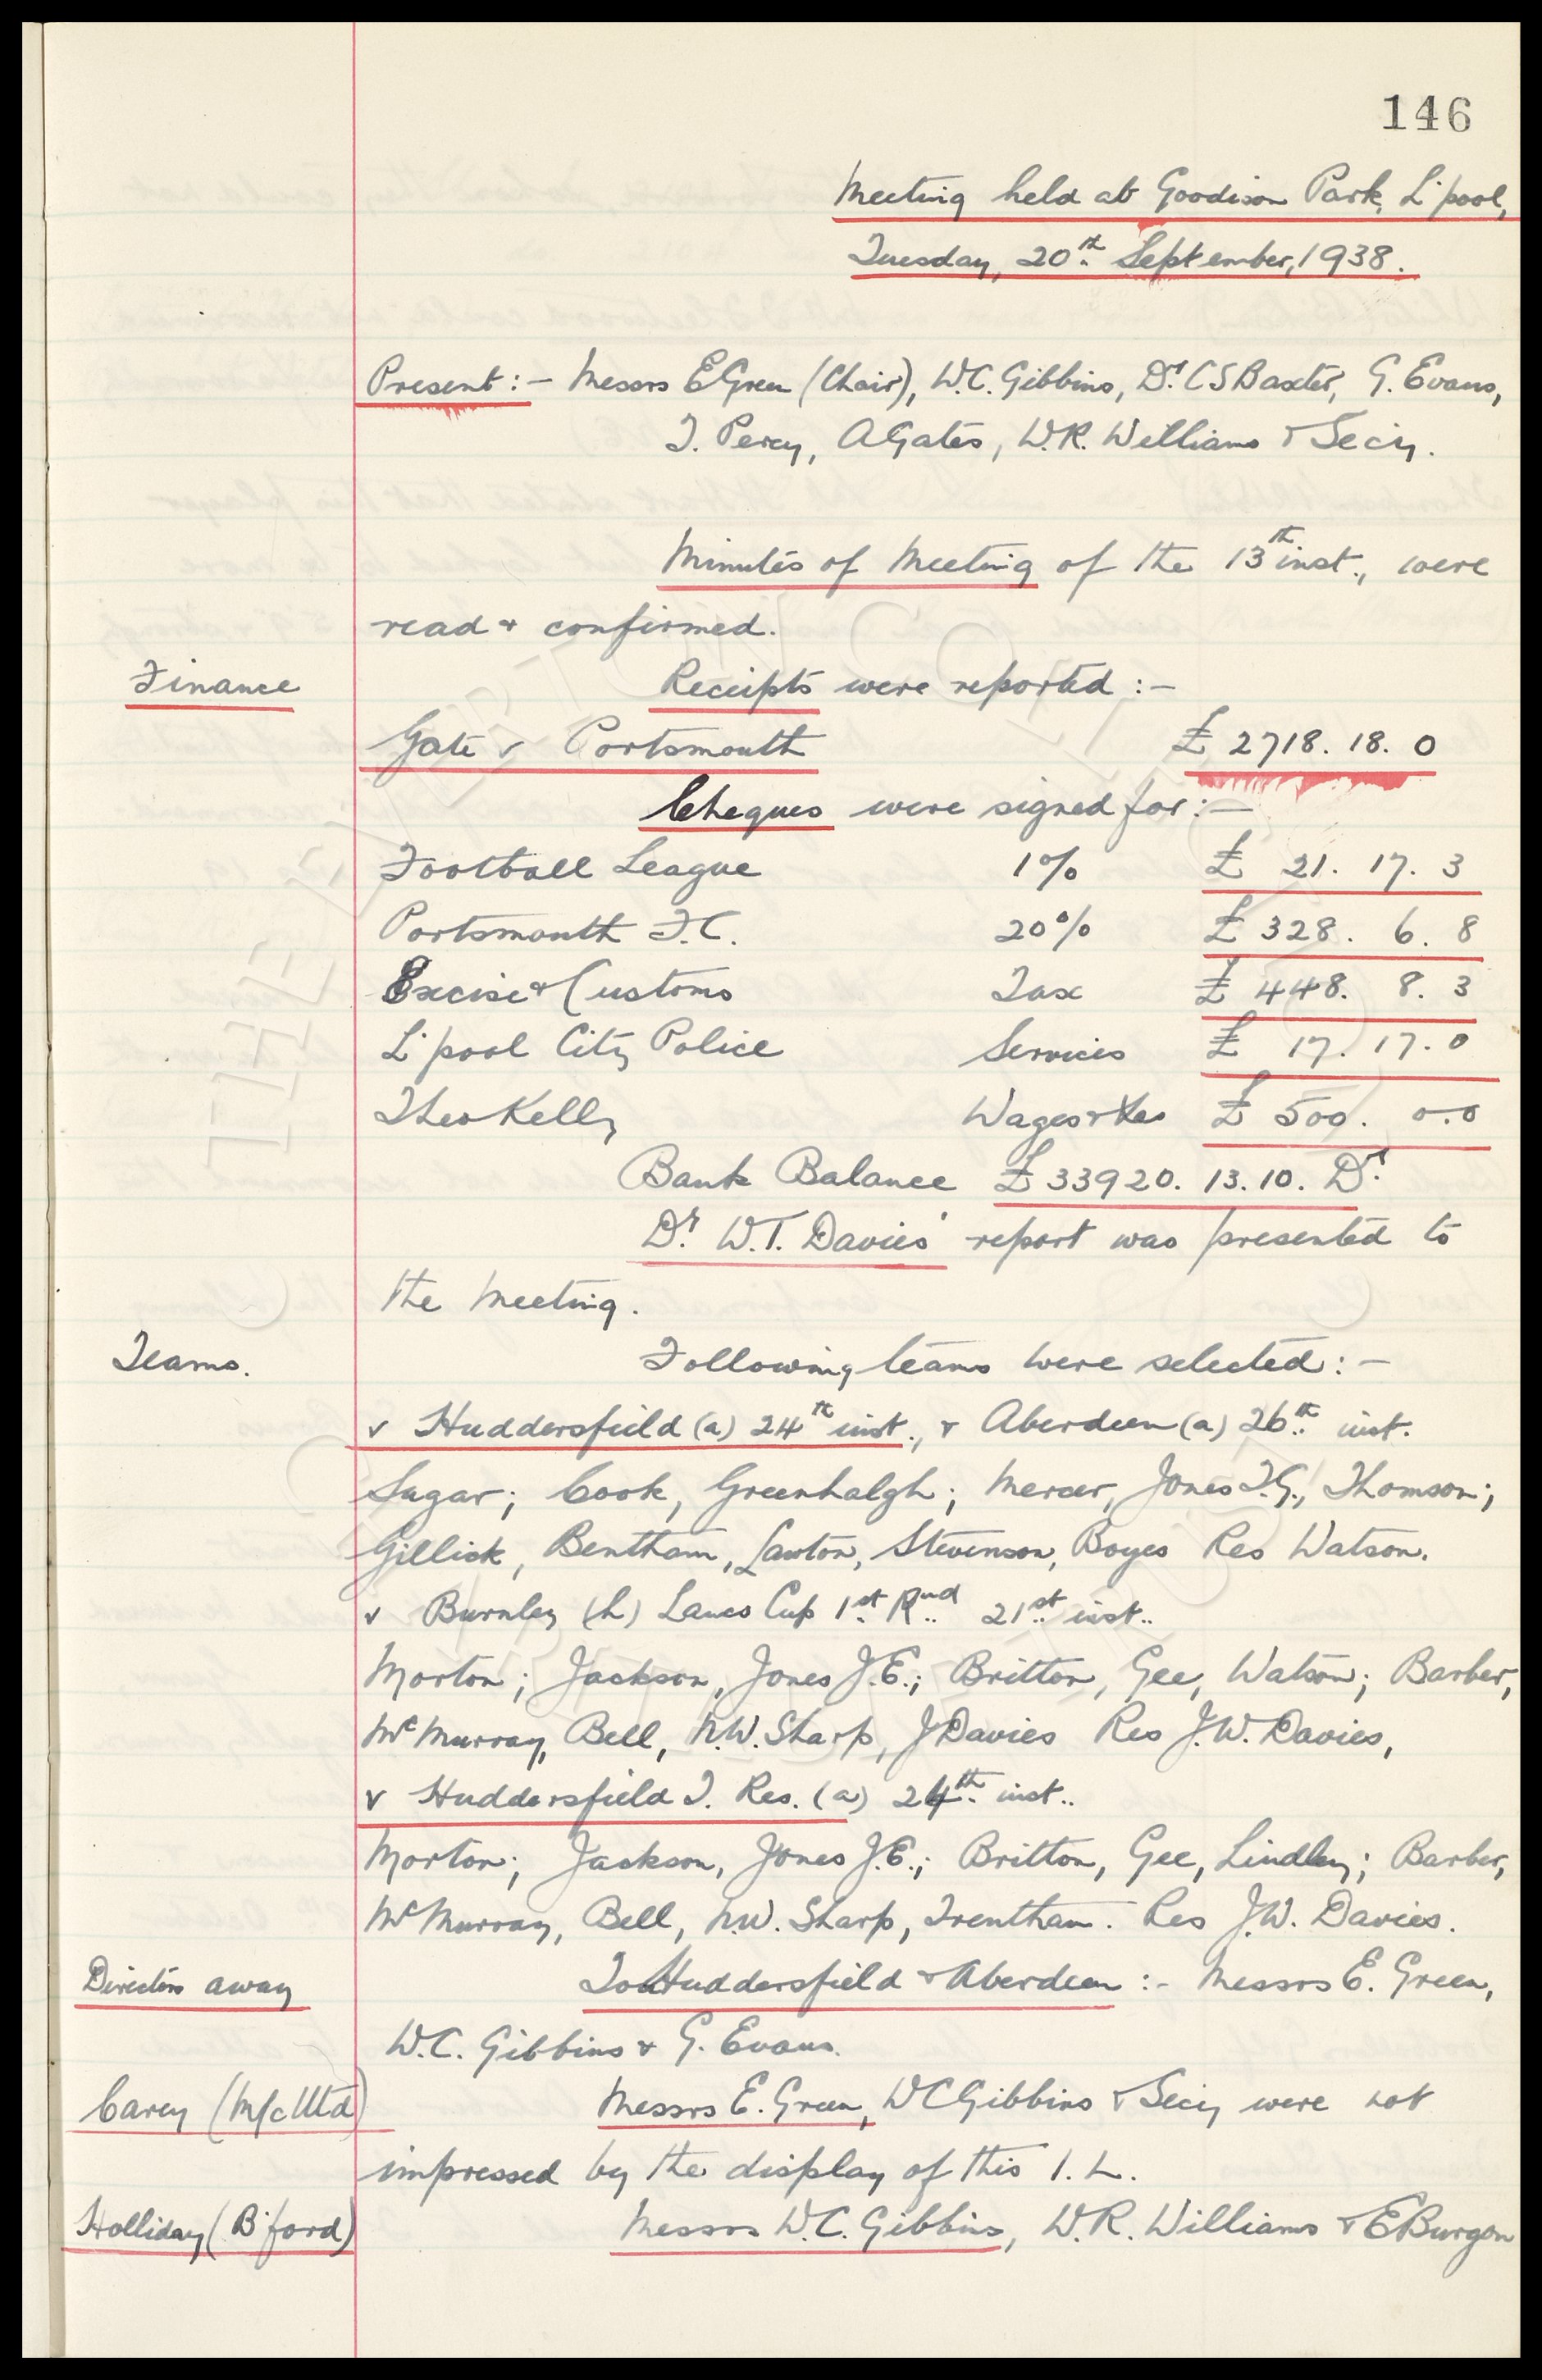 146
Meeting held at Goodison Park, L'pool,
Tuesday, 20th September, 1938.
Present :- Messrs E Green (Chair), W.C. Gibbins, Dr. C S Baxter, G. Evans,
T. Percy, A Gates, W.R. Williams & Secy.
Minutes of Meeting of the 13th inst., were
read & confirmed.
Finance Receipts were reported :-
Gate v Portsmouth £ 2718. 18. 0
Cheques were signed for :-
Football League 1% £ 21. 17. 3
Portsmouth F.C. 20% £ 328. 6. 8
Excise & Customs Tax £ 448. 8. 3
L'pool City Police Services £ 17. 17. 0
Theo Kelly Wages & Xes £ 500. 0.0
Bank Balance £33920. 13. 10. Dr.
Dr. W.T. Davies' report was presented to
the Meeting.
Teams. Following teams were selected :-
v Huddersfield (a) 24th inst., & Aberdeen (a) 26th inst.
Sagar; Cook, Greenhalgh; Mercer, Jones T.G., Thomson;
Gillick, Bentham, Lawton, Stevenson, Boyes Res Watson.
v Burnley (h) Lancs Cup 1st Rnd 21st inst..
Morton; Jackson, Jones J.E.; Britton, Gee, Watson; Barber,
McMurray, Bell, N.W. Sharp, J Davies Res J.W. Davies,
v Huddersfield T. Res. (a) 24th inst..
Morton; Jackson, Jones J.E.; Britton, Gee, Lindley; Barber,
McMurray, Bell, N.W. Sharp, Trentham. Res J.W. Davies.
Directors away To Huddersfield & Aberdeen :- Messrs E. Green,
W.C. Gibbins & G. Evans.
Carey (M/c Utd) Messrs E. Green, W C Gibbins & Secy were not
impressed by the display of this I. L.
Holliday (B'ford) Messrs W.C. Gibbins, W.R. Williams & E Burgon